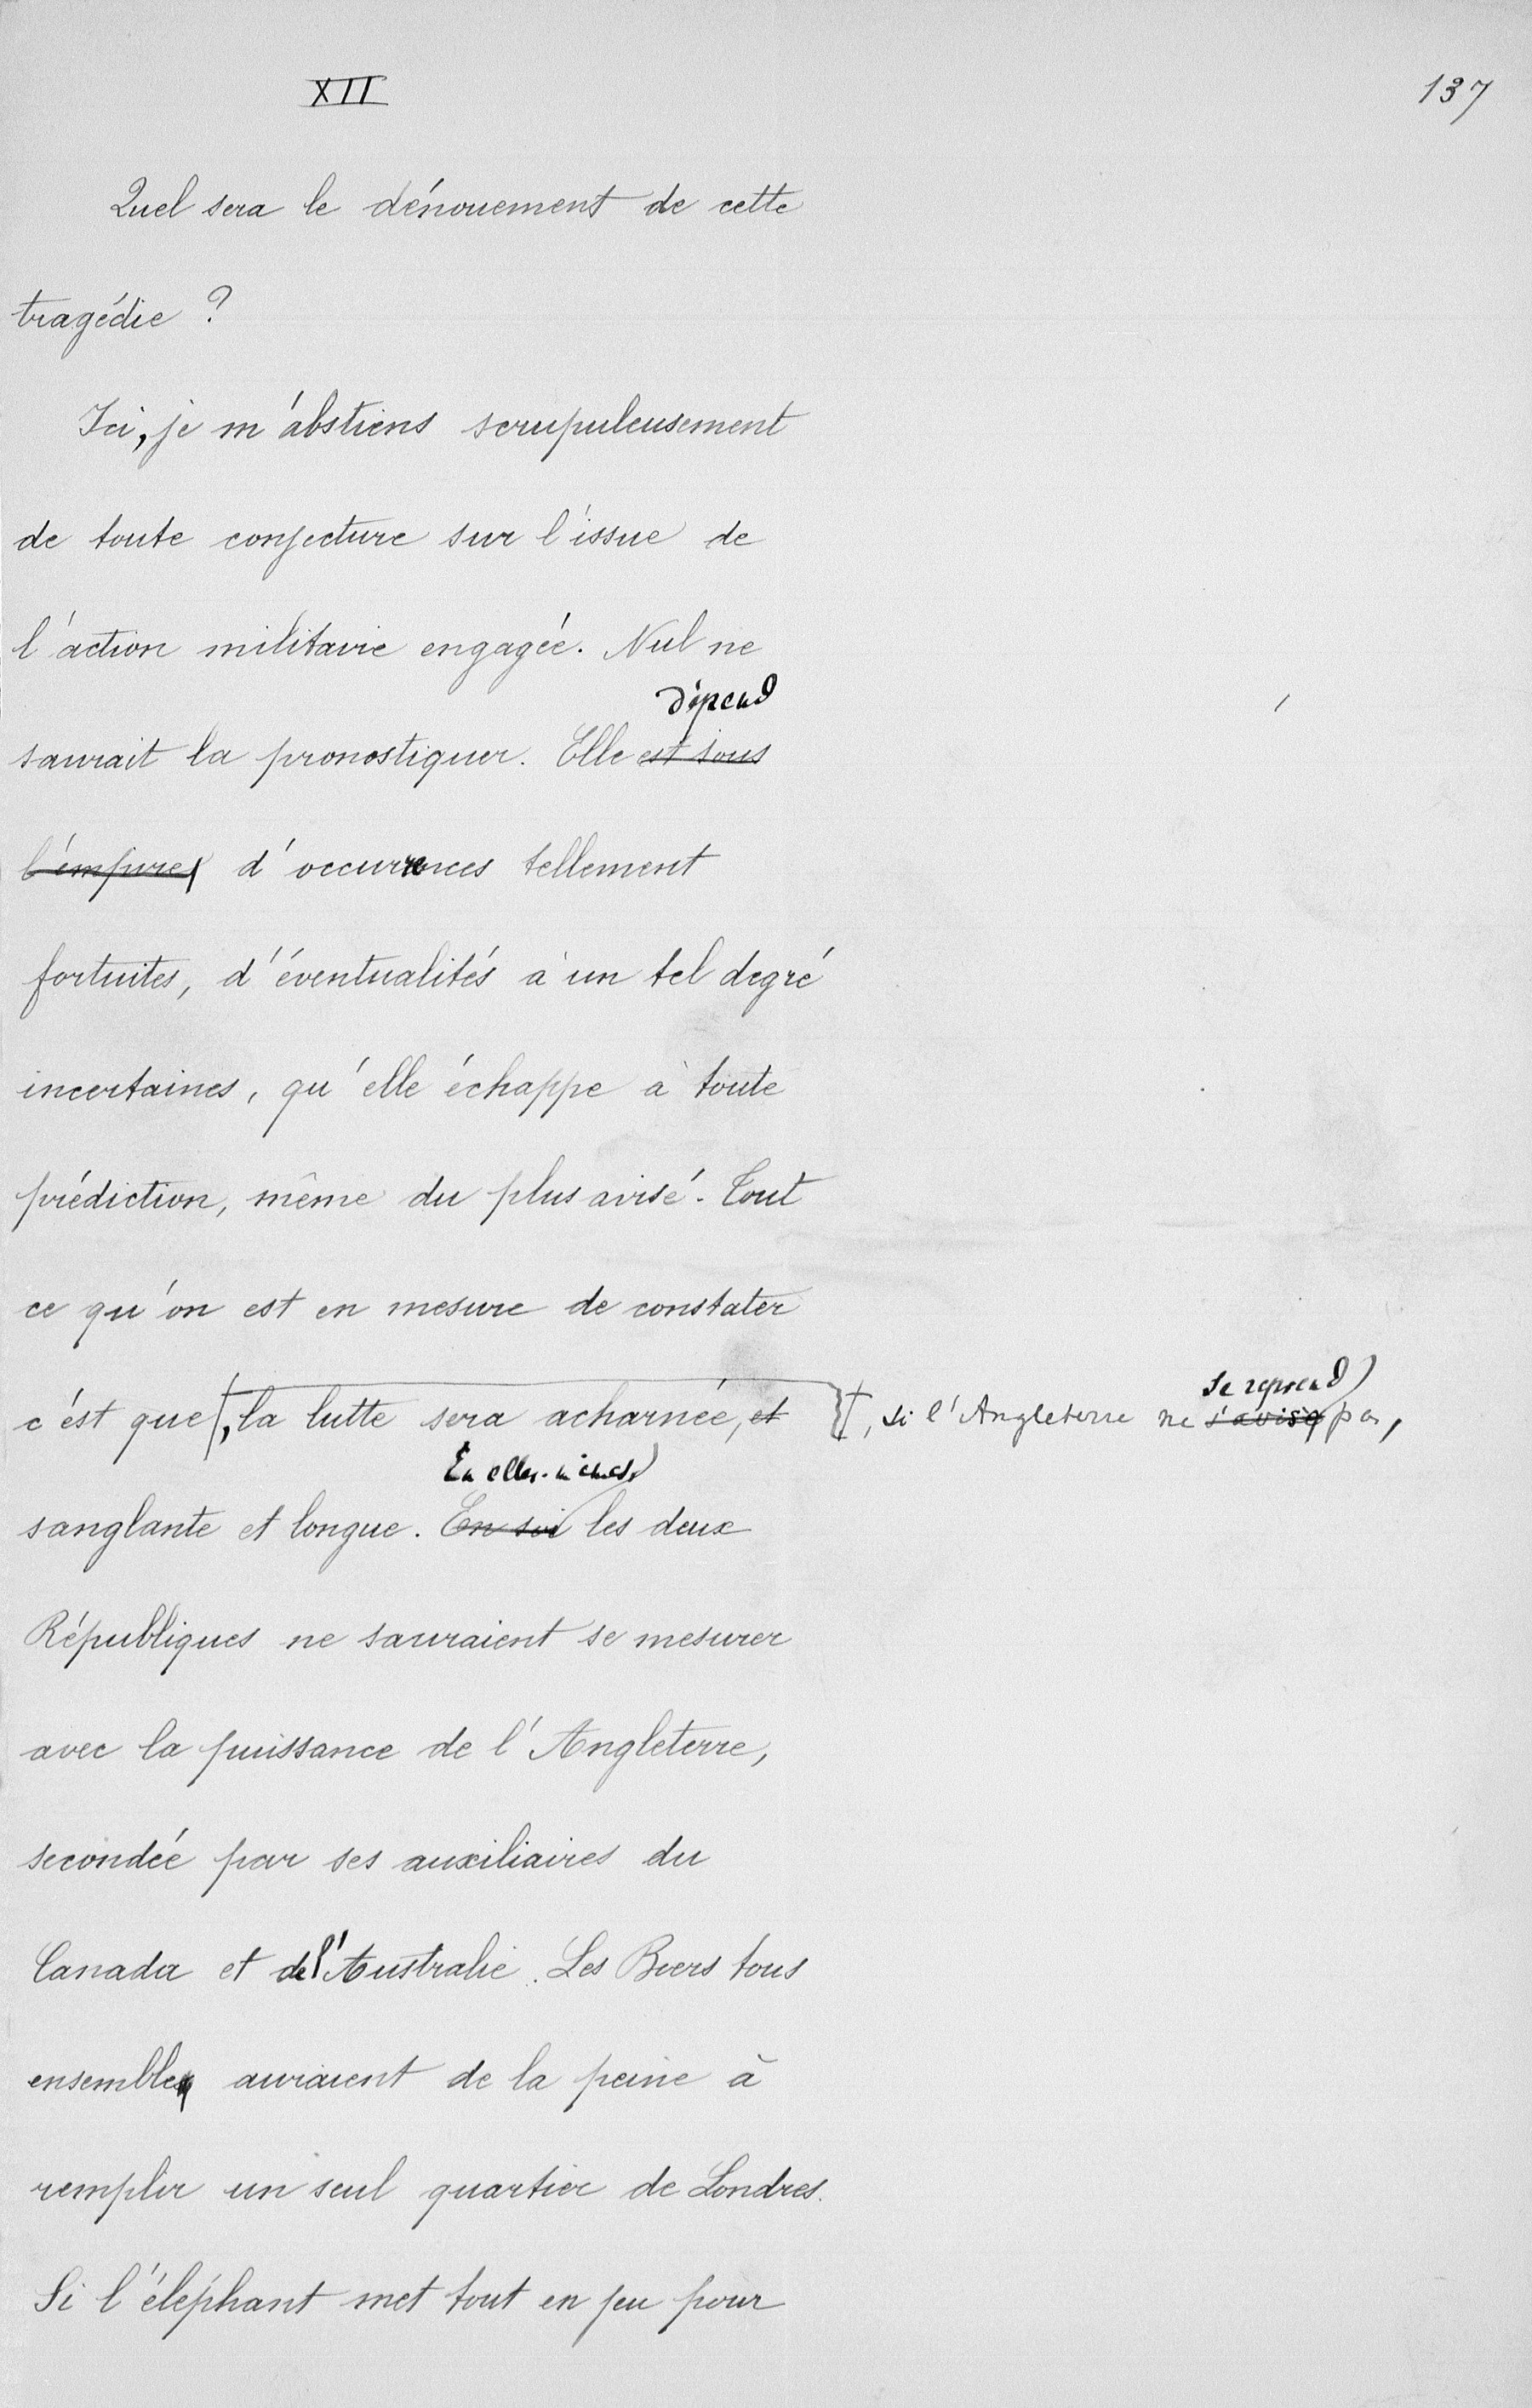 XII
137
Quel sera le dénouement de cette
tragédie ?
Ici, je m'abstiens scrupuleusement
de toute conjecture sur l'issue de
l'action militaire engagée. Nul ne
dépend
saurait la pronostiquer. Elle est sous
l'empire d'occurrences tellement
fortuites, d'éventualités à un tel degré
incertaines, qu'elle échappe à toute
prédiction, même du plus avisé. Tout
ce qu'on est en mesure de constater
se reprend
c'est que, la lutte sera acharnée, et , si l'Angleterre ne s'avise pas,
En elles-mêmes,
sanglante et longue. En soi les deux
Républiques ne sauraient se mesurer
avec la puissance de l'Angleterre,
secondée par ses auxiliaires du
Canada et de l'Australie. Les Boers tous
ensemble auraient de la peine à
remplir un seul quartier de Londres.
Si l'éléphant met tout en jeu pour